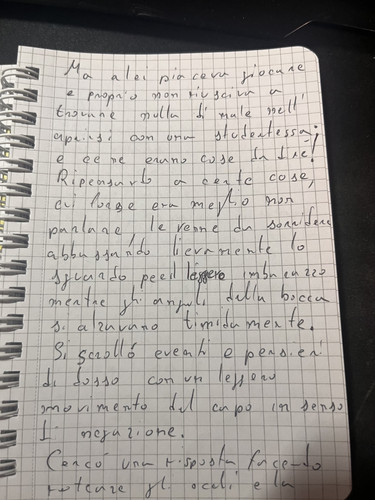 Ma a lei piaceva giocare
e proprio non riusciva a
trovare nulla di male nell'
aprirsi con una studentessa;
e ce ne erano cose da dire!
Ripensando a certe cose,
di forse era meglio non
parlare, le venne da sorridere
abbassando lievemente lo
sguardo per il leggero imbarazzo
mentre gli angoli della bocca
si alzavano timidamente.
Si scrollò eventi e pensieri
di dosso con un leggero
movimento del capo in senso
di negazione.
Cercò una risposta facendo
roteare gli occhi e la